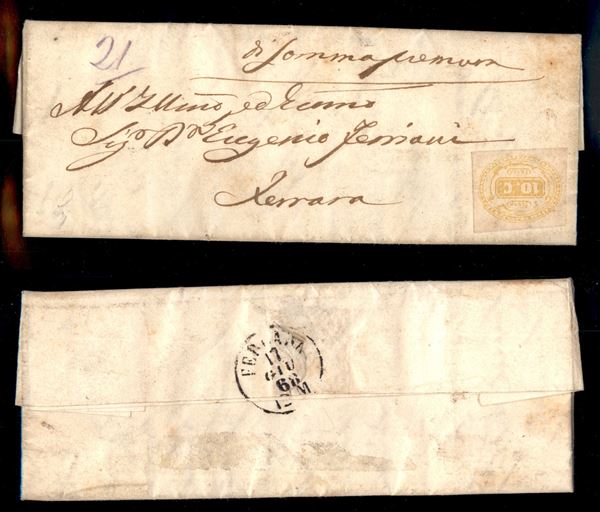 21
di somma premura
All'Illmo ed Eccmo
Sigr Dr Eugenio
Ferrara
10 C
FERRARA
17
GIU
68
12 M